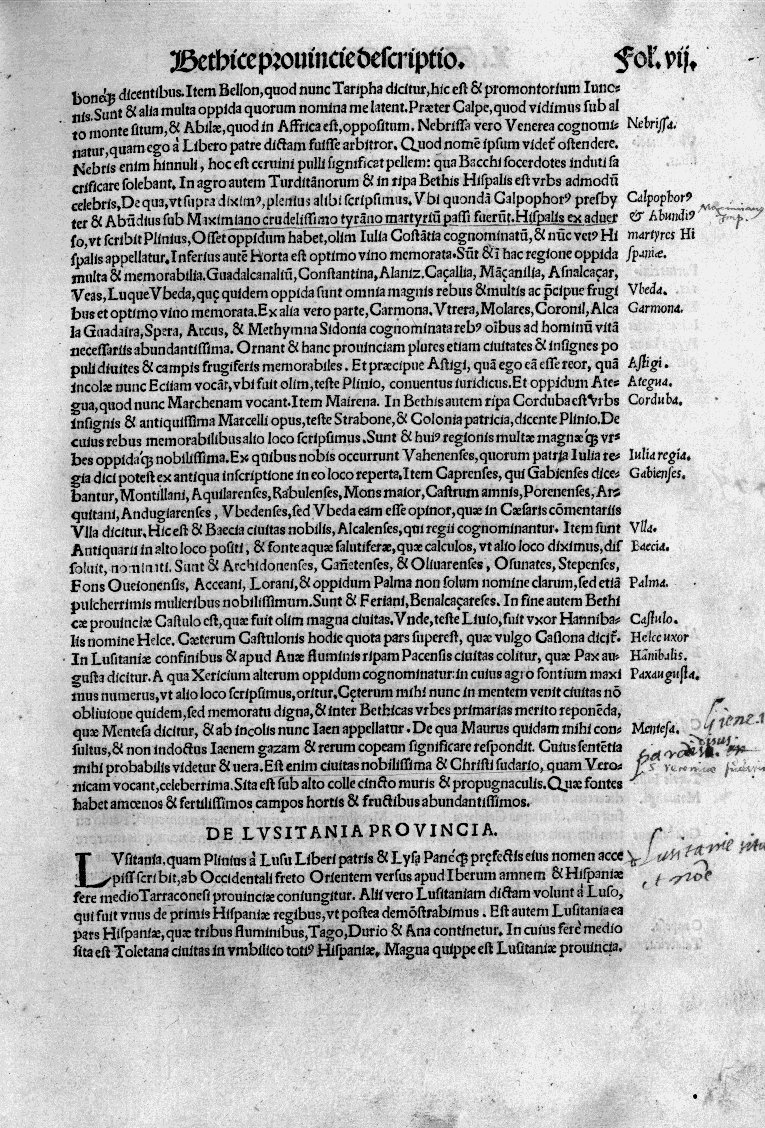 Bethice prouincie descriptio. Fol. vij.
boneq́ʒ dicentibus. Item Bellon, quod nunc Taripha dicitur, hic est & promontorium Iuno-
nis. Sunt & alia multa oppida quorum nomina me latent. Præter Calpe, quod vidimus sub al
to monte situm, & Abilæ, quod in Affrica est, oppositum. Nebrissa vero Venerea cognomi-
Nebrissa.
natur, quam ego à Libero patre dictam fuisse arbitror. Quod nomē ipsum videt᷑ ostendere.
Nebris enim hinnuli, hoc est ceruini pulli significat pellem: qua Bacchi socerdotes induti sa
crificare solebant. In agro autem Turditánorum & in ripa Bethis Hispalis est vrbs admodū
celebris, De qua, vt supra diximꝰ, plenius alibi scripsimus. Vbi quondā Calpophorꝰ presby
Calpophorꝰ
ter & Abūdius sub Maximiano crudelissimo tyrāno martyriū passi fuerūt. Hispalis ex aduer
& Abundiꝰ
so, vt scribit Plinius, Osset oppidum habet, olim Iulia Costātia cognominatū, & nūc vetꝰ Hi
martyres Hi
spalis appellatur. Inferius autē Horta est optimo vino memorata. Sūt & ī hac regione oppida
spaniæ.
multa & memorabilia. Guadalcanaliū, Constantina, Alaniz. Caçallia, Māçanilia, Asnalcaçar,
Veas, Luque Vbeda, quę quidem oppida sunt omnia magnis rebus & multis ac p̄cipue frugi
Vbeda.
bus et optimo vino memorata. Ex alia vero parte, Carmona. Vtrera, Molares, Coronil, Alca
Garmona.
la Guadaira, Spera, Arcus, & Methymna Sidonia cognominata rebꝰ oībus ad hominū vitā
necessariis abundantissima. Ornant & hanc prouinciam plures etiam ciuitates & insignes po
puli diuites & campis frugiferis memorabiles. Et præcipue Astigi, quā ego eā esse reor, quā
Astigi.
incolæ nunc Ecitam vocāt, vbi fuit olim, teste Plinio, conuentus iuridicus. Et oppidum Ate-
Ategua.
gua, quod nunc Marchenam vocant. Item Mairena. In Bethis autem ripa Corduba est Vrbs
Corduba.
insignis & antiquissima Marcelli opus, teste Strabone, & Colonia patricia, dicente Plinio. De
cuius rebus memorabilibus alio loco scripsimus. Sunt & huiꝰ regionis multæ magnæq́ʒ vr-
bes oppidaq́ʒ nobilissima. Ex quibus nobis occurrunt Vahenenses, quorum patria Iulia re-
Iulia regia.
gia dici potest ex antiqua inscriptione in eo loco reperta. Item Caprenses, qui Gabienses dice-
Gabienses.
bantur, Montillani, Aquilarenses, Rabulenses, Mons maior, Castrum amnis, Porenenses, Ar-
quitani, Andugiarenses, Vbedenses, sed Vbeda eam esse opinor, quæ in Cæsaris cōmentariis
Vlla dicitur. Hic est & Baecia ciuitas nobilis, Alcalenses, qui regii cognominantur. Item sunt
Vlla.
Antiquarii in alto loco positi, & fonte aquæ salutiferæ, quæ calculos, vt alio loco diximus, dis
Baecia.
soluit, nominati. Sunt & Archidonenses, Cañetenses, & Oliuarenses, Osunates, Stepenses,
Fons Oueionensis, Acceani, Lorani, & oppidum Palma non solum nomine clarum, sed etiā
Palma.
pulcherrimis mulieribus nobilissimum. Sunt & Feriani, Benalcaçareses. In fine autem Bethi
cæ prouinciæ Castulo est, quæ fuit olim magna ciuitas. Vnde, teste Liuio, fuit vxor Hanniba-
Castulo.
lis nomine Helce. Cæterum Castulonis hodie quota pars superest, quæ vulgo Caslona dicit᷑.
Helce uxor
In Lusitaniæ confinibus & apud Anæ fluminis ripam Pacensis ciuitas colitur, quæ Pax au-
Hānibalis.
gusta dicitur. A qua Xericium alterum oppidum cognominatur: in cuius agro fontium maxi
Paxaugusta.
mus numerus, vt alio loco scripsimus, oritur. Cęterum mihi nunc in mentem venit ciuitas nō
obliuione quidem, sed memoratu digna, & inter Bethicas vrbes primarias merito reponēda,
quæ Mentesa dicitur, & ab incolis nunc Iaen appellatur. De qua Maurus quidam mihi con-
Mentesa.
sultus, & non indoctus Iaenem gazam & rerum copeam significare respondit. Cuius sentētia
mihi probabilis videtur & uera. Est enim ciuitas nobilissima & Christi sudario, quam Vero-
nicam vocant, celeberrima. Sita est sub alto colle cincto muris & propugnaculis. Quæ fontes
habet amœnos & fertilissimos campos hortis & fructibus abundantissimos.
DE LVSITANIA PROVINCIA.
LVsitania. quam Plinius à Lusu Liberi patris & Lysa Paneq́ʒ pręfectis eius nomen acce
pisse scribit, ab Occidentali freto Orientem versus apud Iberum amnem & Hispaniæ
fere medio Tarraconesi prouinciæ coniungitur. Alii vero Lusitaniam dictam volunt à Luso,
qui fuit vnus de primis Hispaniæ regibus, vt postea demōstrabimus. Est autem Lusitania ea
pars Hispaniæ, quæ tribus fluminibus, Tago, Durio & Ana continetur. In cuius ferè medio
sita est Toletana ciuitas in vmbilico totiꝰ Hispaniæ. Magna quippe est Lusitaniæ prouincia.